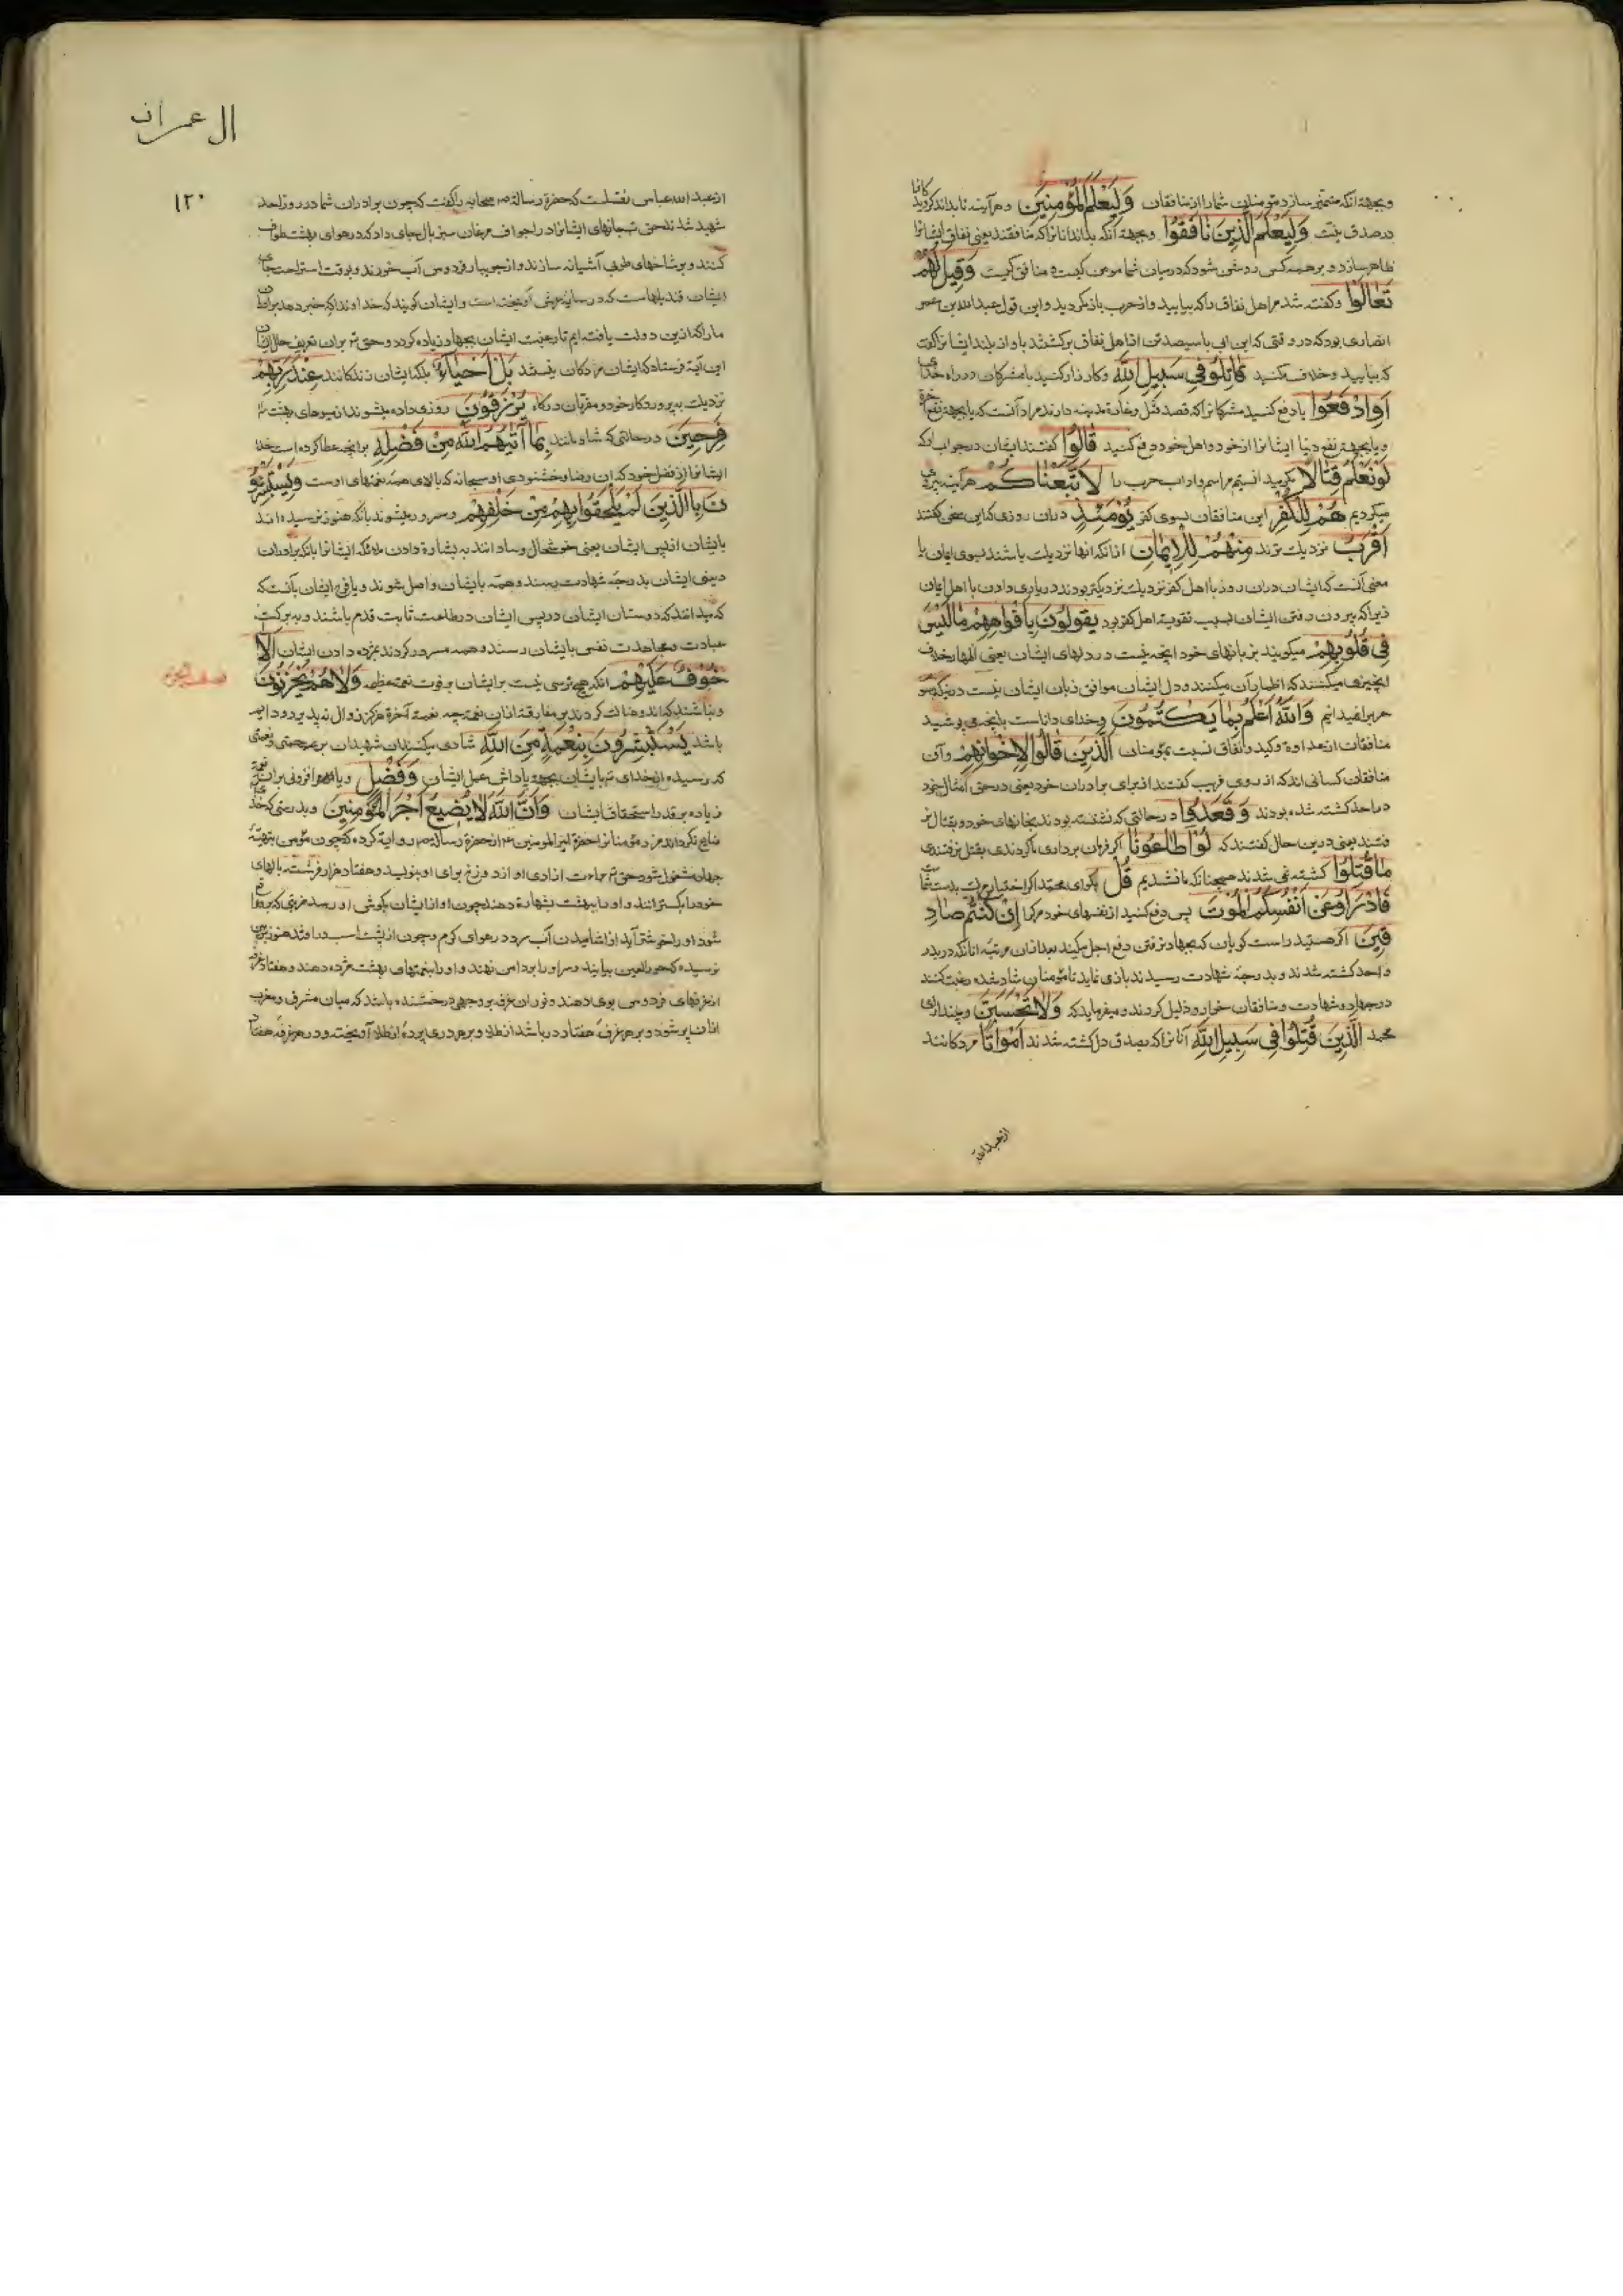 و بجهة آنکه متمیز سازد مؤمنان شما را از منافقان وَلِيَعْلَمَ الْمُؤْمِنِينَ و هرآینه تا بداند کردید
در صدق نیت وَلِيَعْلَمَ الَّذِينَ نَافَقُوا و بجهة آنکه بداند انانرا که منافقند یعنی نفاق ایشانرا
ظاهر سازد و بر همه کس روشن شود که در میان شما مومن کیست و منافق کیست وَقِيلَ لَهُمْ
تَعَالَوْا و کفته شد مر اهل نفاق را که بیایید و از حرب باز مکردید و این قول عبدالله بن عمر
انصاری بود که در وقتی که ابن ابی با سیصد تن از اهل نفاق برکشتند باواز بلند ایشانرا کفت
که بیایید و خلاف مکنید قَاتِلُوا فِي سَبِيلِ اللَّهِ و کارزار کنید با مشرکان در راه خدای
أَوِ ادْفَعُوا یا دفع کنید مشرکانرا که قصد قتل و غارة مدینه دارند مراد آنست که یا بجهة نفع آخرة
و یا بجهة نفع دنیا ایشانرا از خود و اهل خود دفع کنید قَالُوا کفتند ایشان در جواب او که
لَوْ نَعْلَمُ قِتَالًا اگر میدانستیم مراسم و اداب حرب را لَاتَّبَعْنَاكُمْ هرآینه پیروی
میکردیم هُمْ لِلْكُفْرِ این منافقان بسوی کفر يَوْمَئِذٍ در ان روزی که این سخن کفتند
أَقْرَبُ نزدیک ترند مِنْهُمْ لِلْإِيمَانِ از انکه انها نزدیک باشند بسوی ایمان یا
معنی آنست که ایشان دران روز با اهل کفر نزدیک نزدیکتر بودند در یاری دادن با اهل ایمان
زیرا که بیرون رفتن ایشان بسبب تقویت اهل کفر بود يَقُولُونَ بِأَفْوَاهِهِمْ مَا لَيْسَ
فِي قُلُوبِهِمْ میکویند بزبانهای خود انچه نیست در دلهای ایشان یعنی اظهار خلاف
انچیزی میکنند که اظهار آن میکنند و دل ایشان موافق زبان ایشان نیست
حرب را میدانیم وَاللَّهُ أَعْلَمُ بِمَا يَكْتُمُونَ و خدای داناست بانچه می پوشید
منافقان از عداوة و کید و نفاق نسبت بمؤمنان الَّذِينَ قَالُوا لِإِخْوَانِهِمْ و آن
منافقان کسانی اند که از روی فریب کفتند از برای برادران خود یعنی در حق امثال خود
در احد کشته شده بودند وَقَعَدُوا در حالتی که نشسته بودند بخانهای خود و بقتال نر
فتند یعنی درین حال کفتند که لَوْ أَطَاعُونَا اگر فرمان برداری ما کردندی بقتل نرفتندی
مَا قُتِلُوا کشته نمی شدند همچنانکه ما نشدیم قُلْ بکوای محمد اکر اختیار موت بدست شما
فَادْرَءُوا عَنْ أَنْفُسِكُمُ الْمَوْتَ پس دفع کنید از نفسهای خود مرک را إِنْ كُنْتُمْ صَادِ
قِينَ اکر هستید راست کویان که بجهاد نرفتن دفع اجل میکند بعد از ان مرتبه انانکه در بدر
و احد کشته شدند و بدرجهٔ شهادت رسیدند بازی نماید تا مؤمنان شاد شده رغبت کنند
در جهاد و شهادت و منافقان خوار و ذلیل کردند و میفرماید که وَلَا تَحْسَبَنَّ و مپندار ای
محمد الَّذِينَ قُتِلُوا فِي سَبِيلِ اللَّهِ آنانرا که بصدق دل کشته شدند أَمْوَاتًا مردکانند
از عبدالله
ال عمران
۱۲۰
از عبد الله عباس نقلست که حضرة رسالة ص صحابه را کفت که چون برادران شما در روز احد
شهید شدند حق تع جانهای ایشانرا در اجواف مرغان سبز بال جای داد که در هوای بهشت طواف
کنند و بر شاخهای طوبی آشیانه سازند و از جویبار فردوس آب خورند و بوقت استراحت جای
ایشان قندیلهاست که در سایهٔ عرش آویخته است و ایشان کویند که خداوندا که خبر دهد برادران
ما را که ازین دولت یافته ایم تا رغبت ایشان بجهاد زیاده کردد و حق تع برای تعریف حال ایشان
این آیة فرستاد که ایشان مردکان نیستند بَلْ أَحْيَاءٌ بلکه ایشان زندکانند عِنْدَ رَبِّهِمْ
نزدیک پروردکار خود و مقربان درکاه يُرْزَقُونَ روزی داده میشوند از میوهای بهشت
فَرِحِينَ در حالتی که شادمانند بِمَا آتَاهُمُ اللَّهُ مِنْ فَضْلِهِ برانچه عطا کرده است خدا
ایشانرا از فضل خود که ان رضا و خشنودی او سبحانه که بالای همهٔ نعمتهای اوست وَيَسْتَبْشِرُو
نَ بِالَّذِينَ لَمْ يَلْحَقُوا بِهِمْ مِنْ خَلْفِهِمْ و مسرور میشوند بانکه هنوز نرسیده اند
بایشان از پس ایشان یعنی خوشحال و شادانند به بشارة دادن ملائکه ایشانرا بانکه برادران
دینی ایشان بدرجهٔ شهادت رسند و همه بایشان واصل شوند و
که بدانند که دوستان ایشان در پس ایشان در طاعت ثابت قدم باشند و به برکت
عبادت و مجاهدت نفس بایشان رسند و همه مسرور کردند بمژده دادن ایشان أَلَّا
خَوْفٌ عَلَيْهِمْ انکه هیچ ترسی نیست بر ایشان بر فوت نعمت عظمی وَلَا هُمْ يَحْزَنُونَ
و نباشند که اندوهناک کردند بر مفارقة انان نعمت چه نعمة آخرة هرکز زوال نپذیرد و دایم
باشد يَسْتَبْشِرُونَ بِنِعْمَةٍ مِنَ اللَّهِ شادی میکنند ان شهیدان بر مرحمتی و نعمتی
که رسیده از خدای تع بایشان بجهة پاداش عمل ایشان وَفَضْلٍ و
زیاده بر قدر استحقاق ایشان وَأَنَّ اللَّهَ لَا يُضِيعُ أَجْرَ الْمُؤْمِنِينَ و بدرستی که خدا
ضایع نکرداند مزد مؤمنانرا حضرة امیر المومنین ع از حضرة رسالة ص روایة کرده که چون مؤمن بتهیهٔ
جهاد مشغول شود حق تع براءت ازادی او از دوزخ برای او بنویسد و هفتاد هزار فرشته بالهای
خود را بکسترانند و او را ببهشت بشارة دهند
شود او را خوشتر آید از اشامیدن آب سرد در هوای کرم و چون از پشت اسب درافتد هنوز بزمین
نرسیده که حور العین بیایند و سر او را بدامن نهند و او را بنعمتهای بهشت مژده دهند و هفتاد غرفه
از غرفهای فردوس بوی دهند و نور ان غرفه بر وجهی درخشنده باشد که میان مشرق و مغرب
از ان پر شود و بر هر غرفهٔ هفتاد در باشد از طلا و بر هر دری پردهٔ از طلا آویخته و در هر غرفه هفتاد